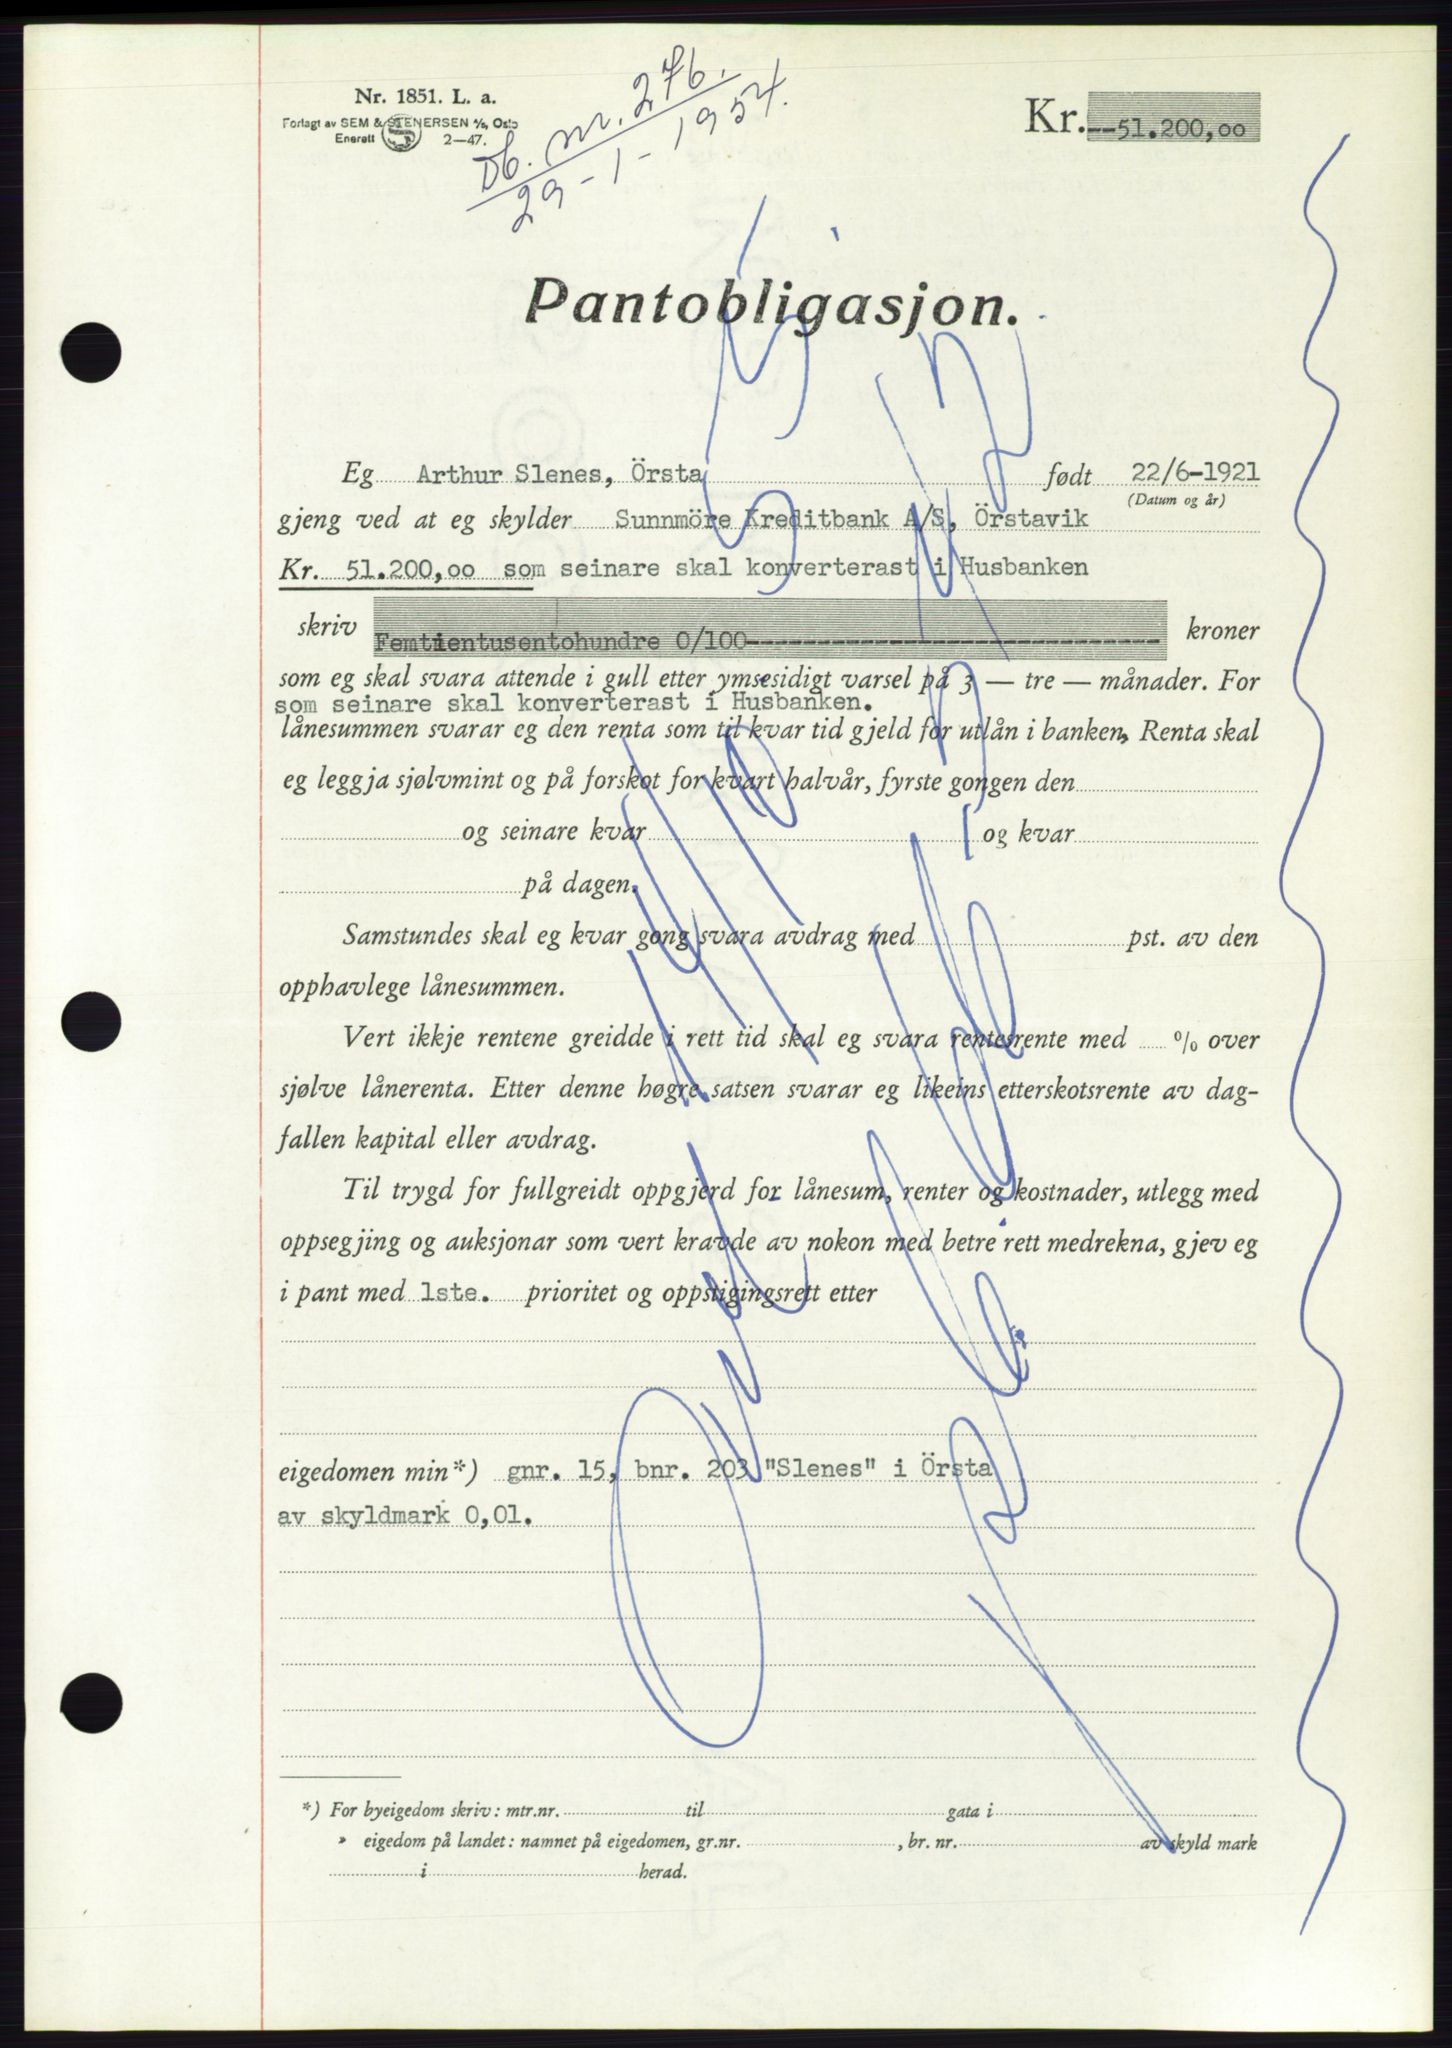 Nr. 1851. L. a.
Forlagt av SEM & STENERSEN A/S, Oslo
Enerett 2—47.
Db. nr. 276.
29-1-1954.
Kr. --51.200,00
Pantobligasjon.
Eg Arthur Slenes, Örsta født 22/6-1921
(Datum og år)
gjeng ved at eg skylder Sunnmöre Kreditbank A/S, Örstavik
Kr. 51.200,00 som seinare skal konverterast i Husbanken
skriv Femtientusentohundre 0/100-------- kroner
som eg skal svara attende i gull etter ymsesidigt varsel på 3 — tre — månader. For
som seinare skal konverterast i Husbanken.
lånesummen svarar eg den renta som til kvar tid gjeld for utlån i banken, Renta skal
eg leggja sjølvmint og på forskot for kvart halvår, fyrste gongen den
og seinare kvar og kvar
på dagen.
Samstundes skal eg kvar gong svara avdrag med pst. av den
opphavlege lånesummen.
Vert ikkje rentene greidde i rett tid skal eg svara rentesrente med % over
sjølve lånerenta. Etter denne høgre satsen svarar eg likeins etterskotsrente av dag-
fallen kapital eller avdrag.
Til trygd for fullgreidt oppgjerd for lånesum, renter og kostnader, utlegg med
oppsegjing og auksjonar som vert kravde av nokon med betre rett medrekna, gjev eg
i pant med 1ste. prioritet og oppstigingsrett etter
eigedomen min*) gnr. 15, bnr. 203 "Slenes" i Örsta
av skyldmark 0,01.
*) For byeigedom skriv: mtr.nr. til gata i
» eigedom på landet: namnet på eigedomen, gr.nr. , br. nr. av skyld mark
i herad.